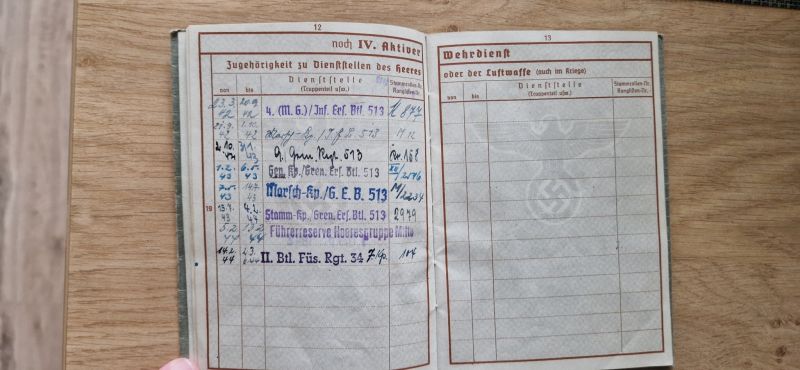 12
noch IV. Aktiver
Zugehörigkeit zu Dienststellen des Heeres
von bis Dienststelle (Truppenteil usw.) Stammrollen-Nr. Ranglisten-Nr.
42 42 4. (M. G.)/Inf. Ers. Btl. 513 877
42 42 513
43 Gren. Rgt. 513 168
1.2. 43 6.5. 43 Gen. Kp./Gren. Ers. Btl. 513
43 43 Marsch-Kp./G. E. B. 513 2234
19
43 44 Stamm-Kp., Gren. Ers. Btl. 513 2979
5.2. 44 44 Führerreserve Heeresgruppe Mitte
14.2. 44 II. Btl. Füs. Rgt. 34 7. Kp. 104
13
Wehrdienst
oder der Luftwaffe (auch im Kriege)
von bis Dienststelle (Truppenteil usw.) Stammrollen-Nr. Ranglisten-Nr.